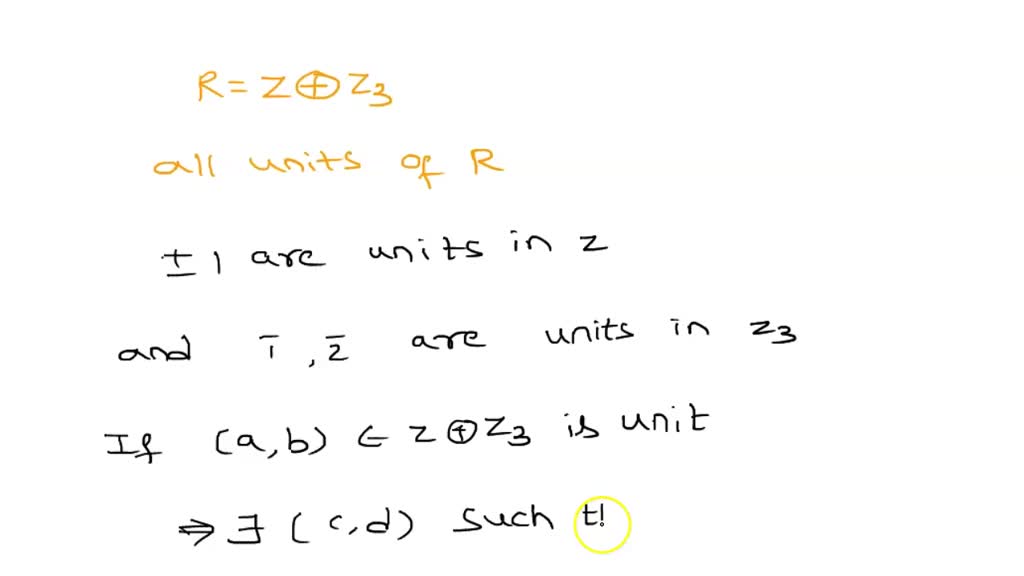 R = Z ⊕ Z₃
all units of R
± 1 are units in Z
and 1̄ , 2̄ are units in Z₃
If (a,b) ∈ Z ⊕ Z₃ is unit
⇒ ∃ (c,d) such